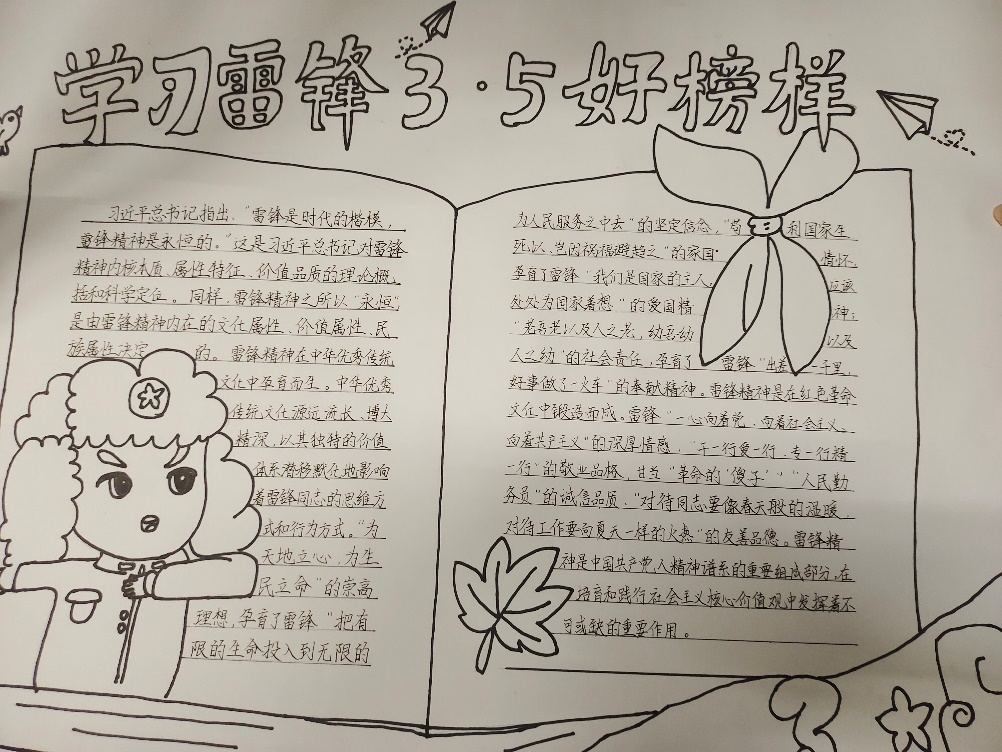 学习雷锋3·5好榜样
习近平总书记指出，“雷锋是时代的楷模，
雷锋精神是永恒的。”这是习近平总书记对雷锋
精神内核本质、属性特征、价值品质的理论概
括和科学定位。同样，雷锋精神之所以“永恒”
是由雷锋精神内在的文化属性、价值属性、民
族属性决定的。雷锋精神在中华优秀传统
文化中孕育而生。中华优秀
传统文化源远流长、博大
精深，以其独特的价值
体系潜移默化地影响
着雷锋同志的思维方
式和行为方式。“为
天地立心，为生
民立命”的崇高
理想，孕育了雷锋“把有
限的生命投入到无限的
为人民服务之中去”的坚定信念，“苟利国家生
死以，岂因祸福避趋之”的家国情怀，
孕育了雷锋“我们是国家的主人，应该
处处为国家着想”的爱国精神；
“老吾老以及人之老，幼吾幼以及
人之幼”的社会责任，孕育了雷锋“出差一千里，
好事做了一火车”的奉献精神。雷锋精神是在红色革命
文化中锻造而成。雷锋“一心向着党，向着社会主义、
向着共产主义”的深厚情感，“干一行爱一行、专一行精
一行”的敬业品格，甘当“革命的‘傻子’”“人民勤
务员”的诚信品质，“对待同志要像春天般的温暖，
对待工作要向夏天一样的火热”的友善品德。雷锋精
神是中国共产党人精神谱系的重要组成部分，在
培育和践行社会主义核心价值观中发挥着不
可或缺的重要作用。